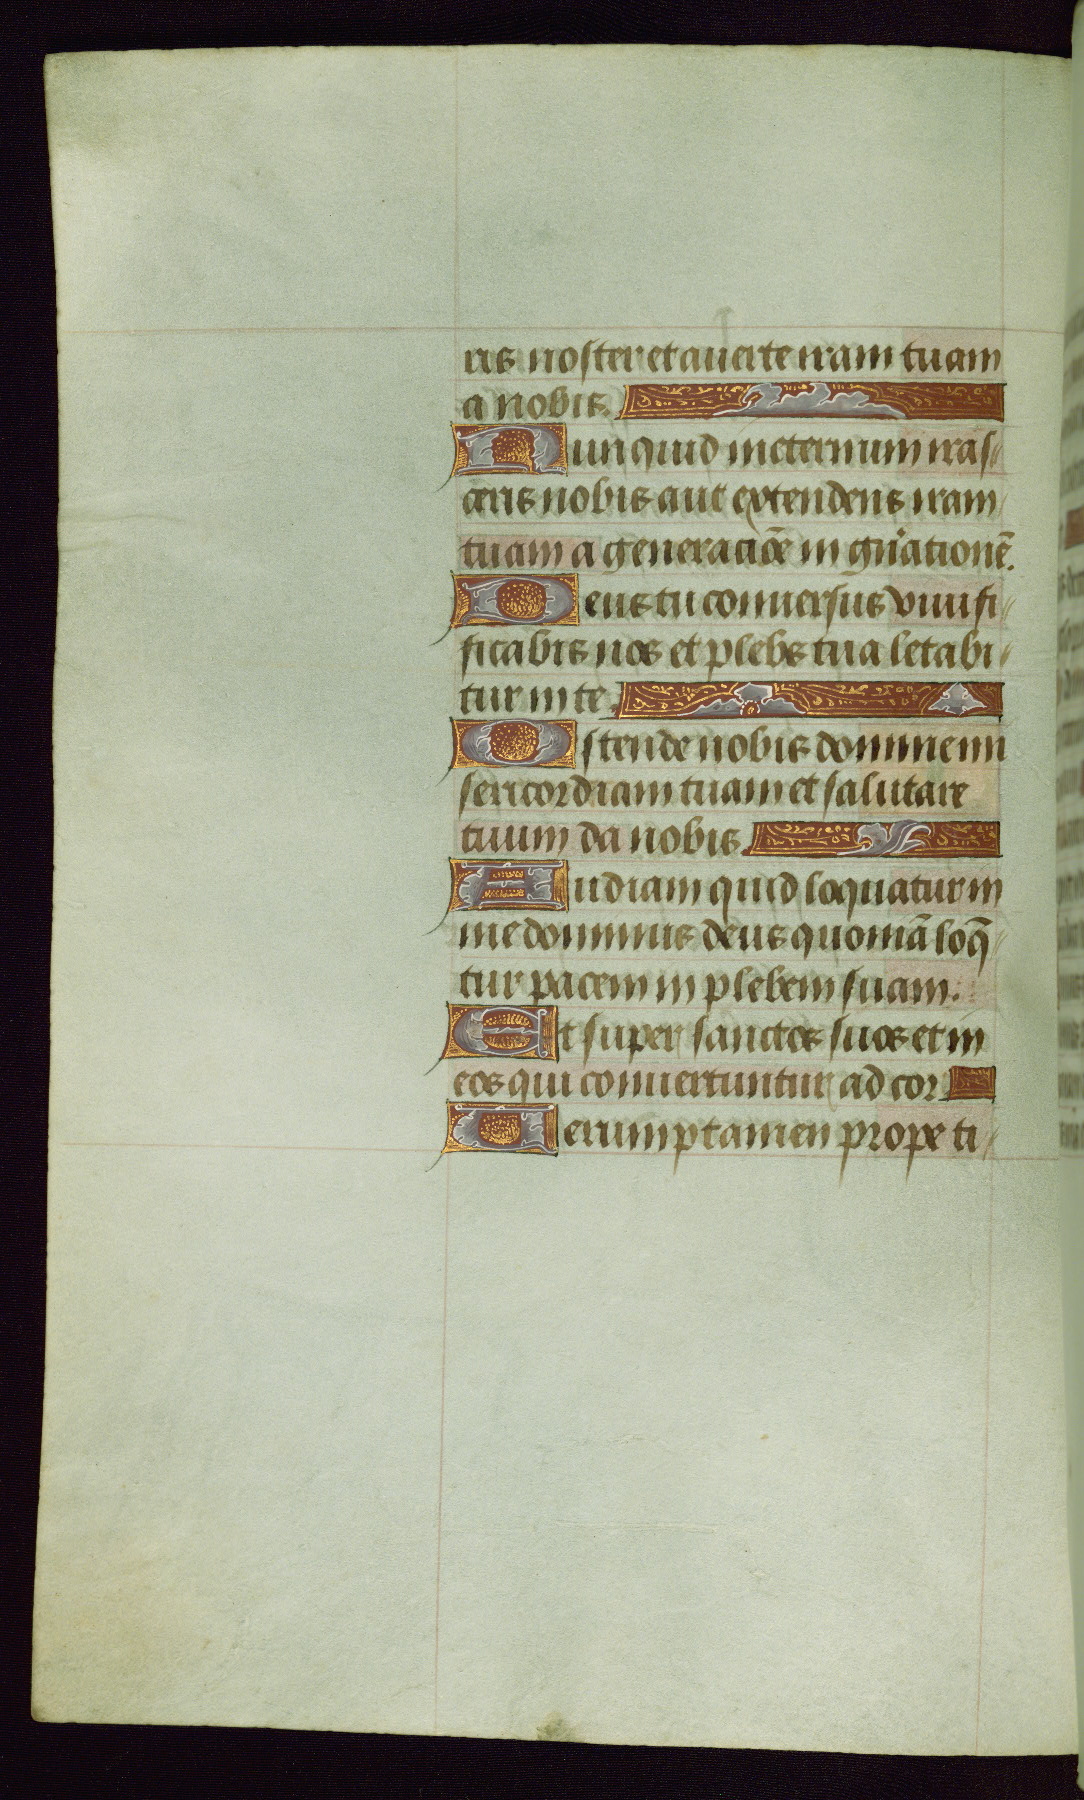 ris noster et averte iram tuam
a nobis.
Nunquid ineternum iras-
ceris nobis aut extendens iram
tuam a generaciõe in gn̄ationē.
Deus tu conversus vivifi-
ficabis nos et plebs tua letabi-
tur in te.
Ostende nobis domine mi
sericordiam tuam et salutare
tuum da nobis.
Audiam quid loquatur in
me dominus deus quoniā loq̄-
tur pacem in plebem suam.
Et super sanctos suos et in
eos qui convertuntur ad cor.
Verumptamen prope ti-